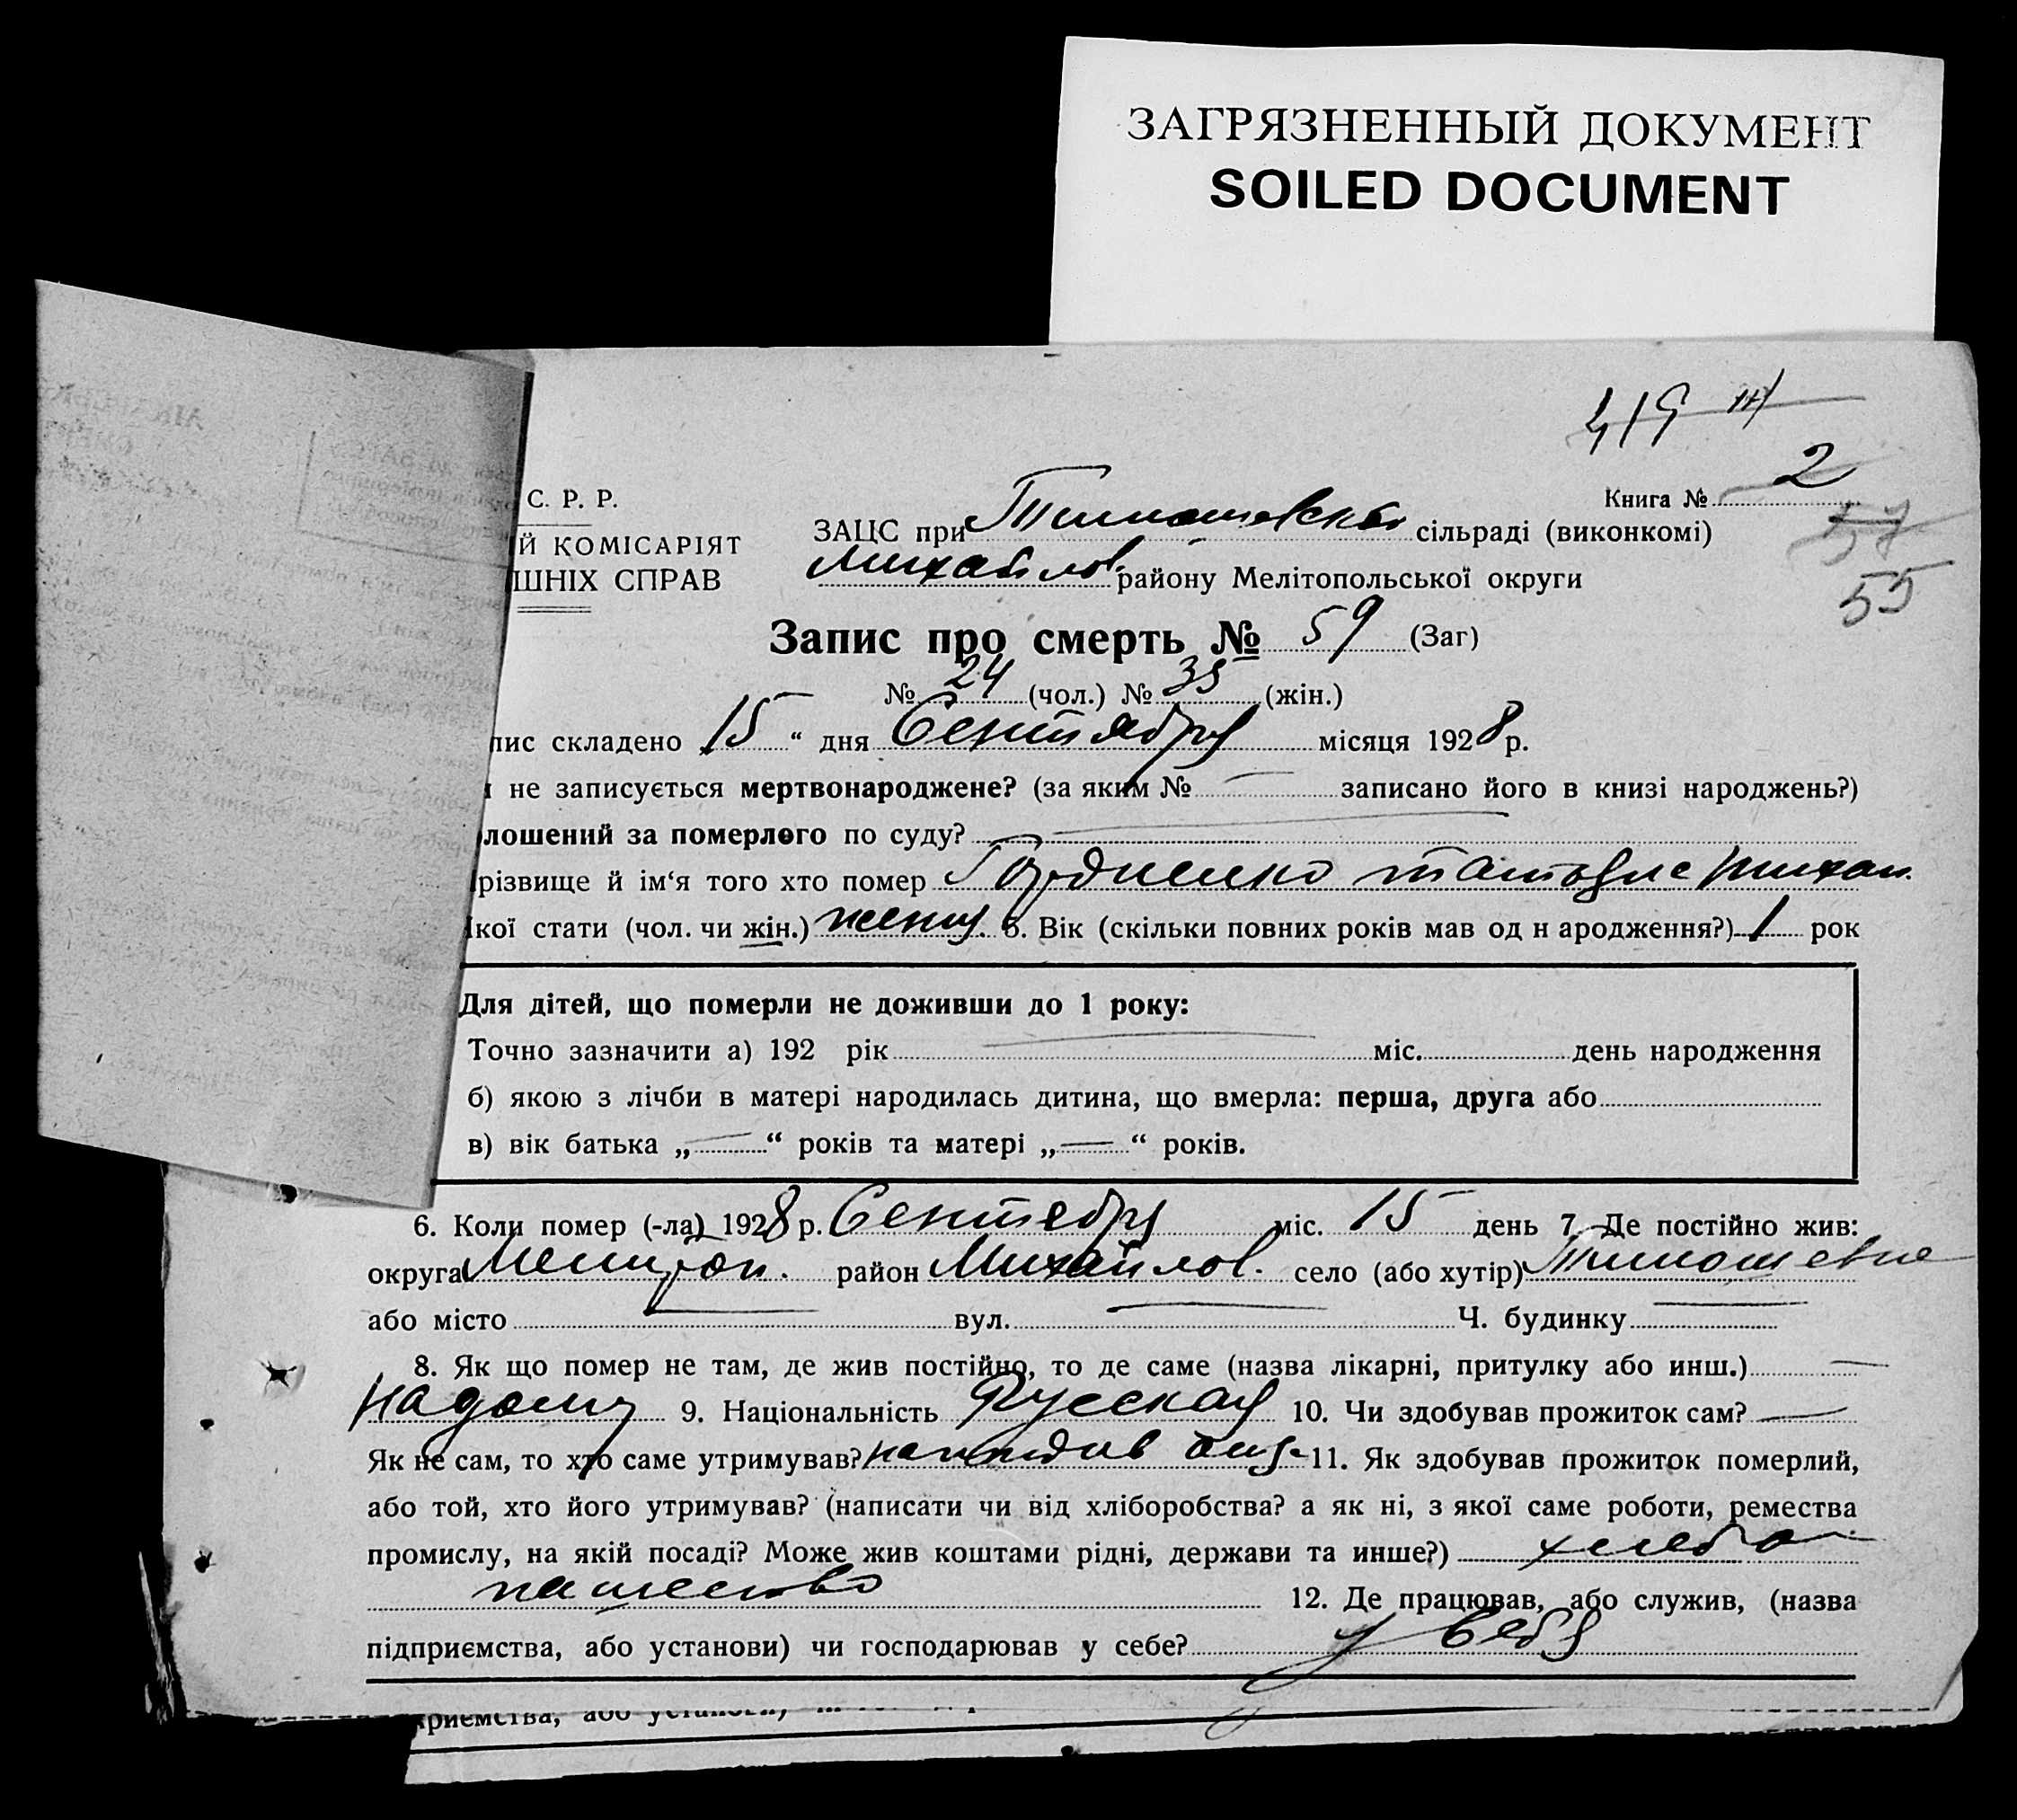 ЗАГРЯЗНЕННЫЙ ДОКУМЕНТ
SOILED DOCUMENT
С. Р. Р.
Книга № 2
57
55
ЗАЦС при Тимошевской сільраді (виконкомі)
Й КОМІСАРІЯТ
Михайлов. району Мелітопольської округи
ШНІХ СПРАВ
Запис про смерть № 59 (Заг)
№ 24 (чол.) № 35 (жін.)
пис складено 15 “ дня Сентября місяця 1928 р.
не записується мертвонароджене? (за яким № — записано його в книзі народжень?)
лошений за померлого по суду? —
різвище й ім‘я того хто помер
кої стати (чол. чи жін.) 5. Вік (скільки повних років мав од н ародження?) 1 рок
Для дітей, що померли не доживши до 1 року:
Точно зазначити а) 192 рік — міс. день народження
б) якою з лічби в матері народилась дитина, що вмерла: перша, друга або
в) вік батька „—“ років та матері „—“ років.
6. Коли помер (-ла) 1928 р. Сентября міс. 15 день 7. Де постійно жив:
округа Мелитоп. район Михайлов. село (або хутір) Тимошевке
або місто — вул. — Ч. будинку —
8. Як що помер не там, де жив постійно, то де саме (назва лікарні, притулку або инш.) —
на дому 9. Національність Русская 10. Чи здобував прожиток сам? —
Як не сам, то хто саме утримував? 11. Як здобував прожиток померлий,
або той, хто його утримував? (написати чи від хліборобства? а як ні, з якої саме роботи, ремества
промислу, на якій посаді? Може жив коштами рідні, держави та инше?) хлебо
пашество 12. Де працював, або служив, (назва
підприємства, або установи) чи господарював у себе? у себя
приємства, або установи)